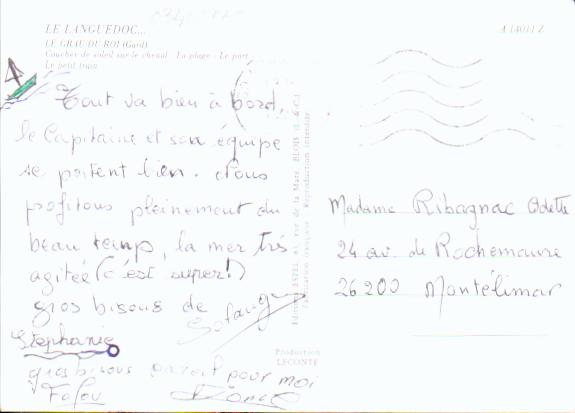 LE LANGUEDOC...
LE GRAU-DU-ROI (Gard)
Coucher de soleil sur le chenal - La plage - Le port -
Le petit train
A 14011 Z
Tout va bien à bord,
le Capitaine et son équipe
se portent bien. Nous
profitons pleinement du
beau temps, la mer très
agitée (c'est super!)
gros bisous de
Stephanie
gros bisous pareil pour moi
Madame Ribagnac Odette
24 av. de Rochemaure
26200 Montélimar
Production
LECONTE
rue de la Mare, BLOIS (L.-&-C.)
Fabrication française - Reproduction interdite